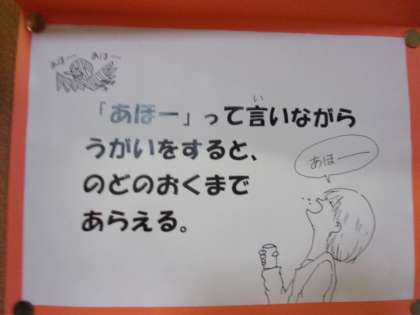 あほー
あほー
「あほー」って言いながら
うがいをすると、
のどのおくまで
あらえる。
あほー